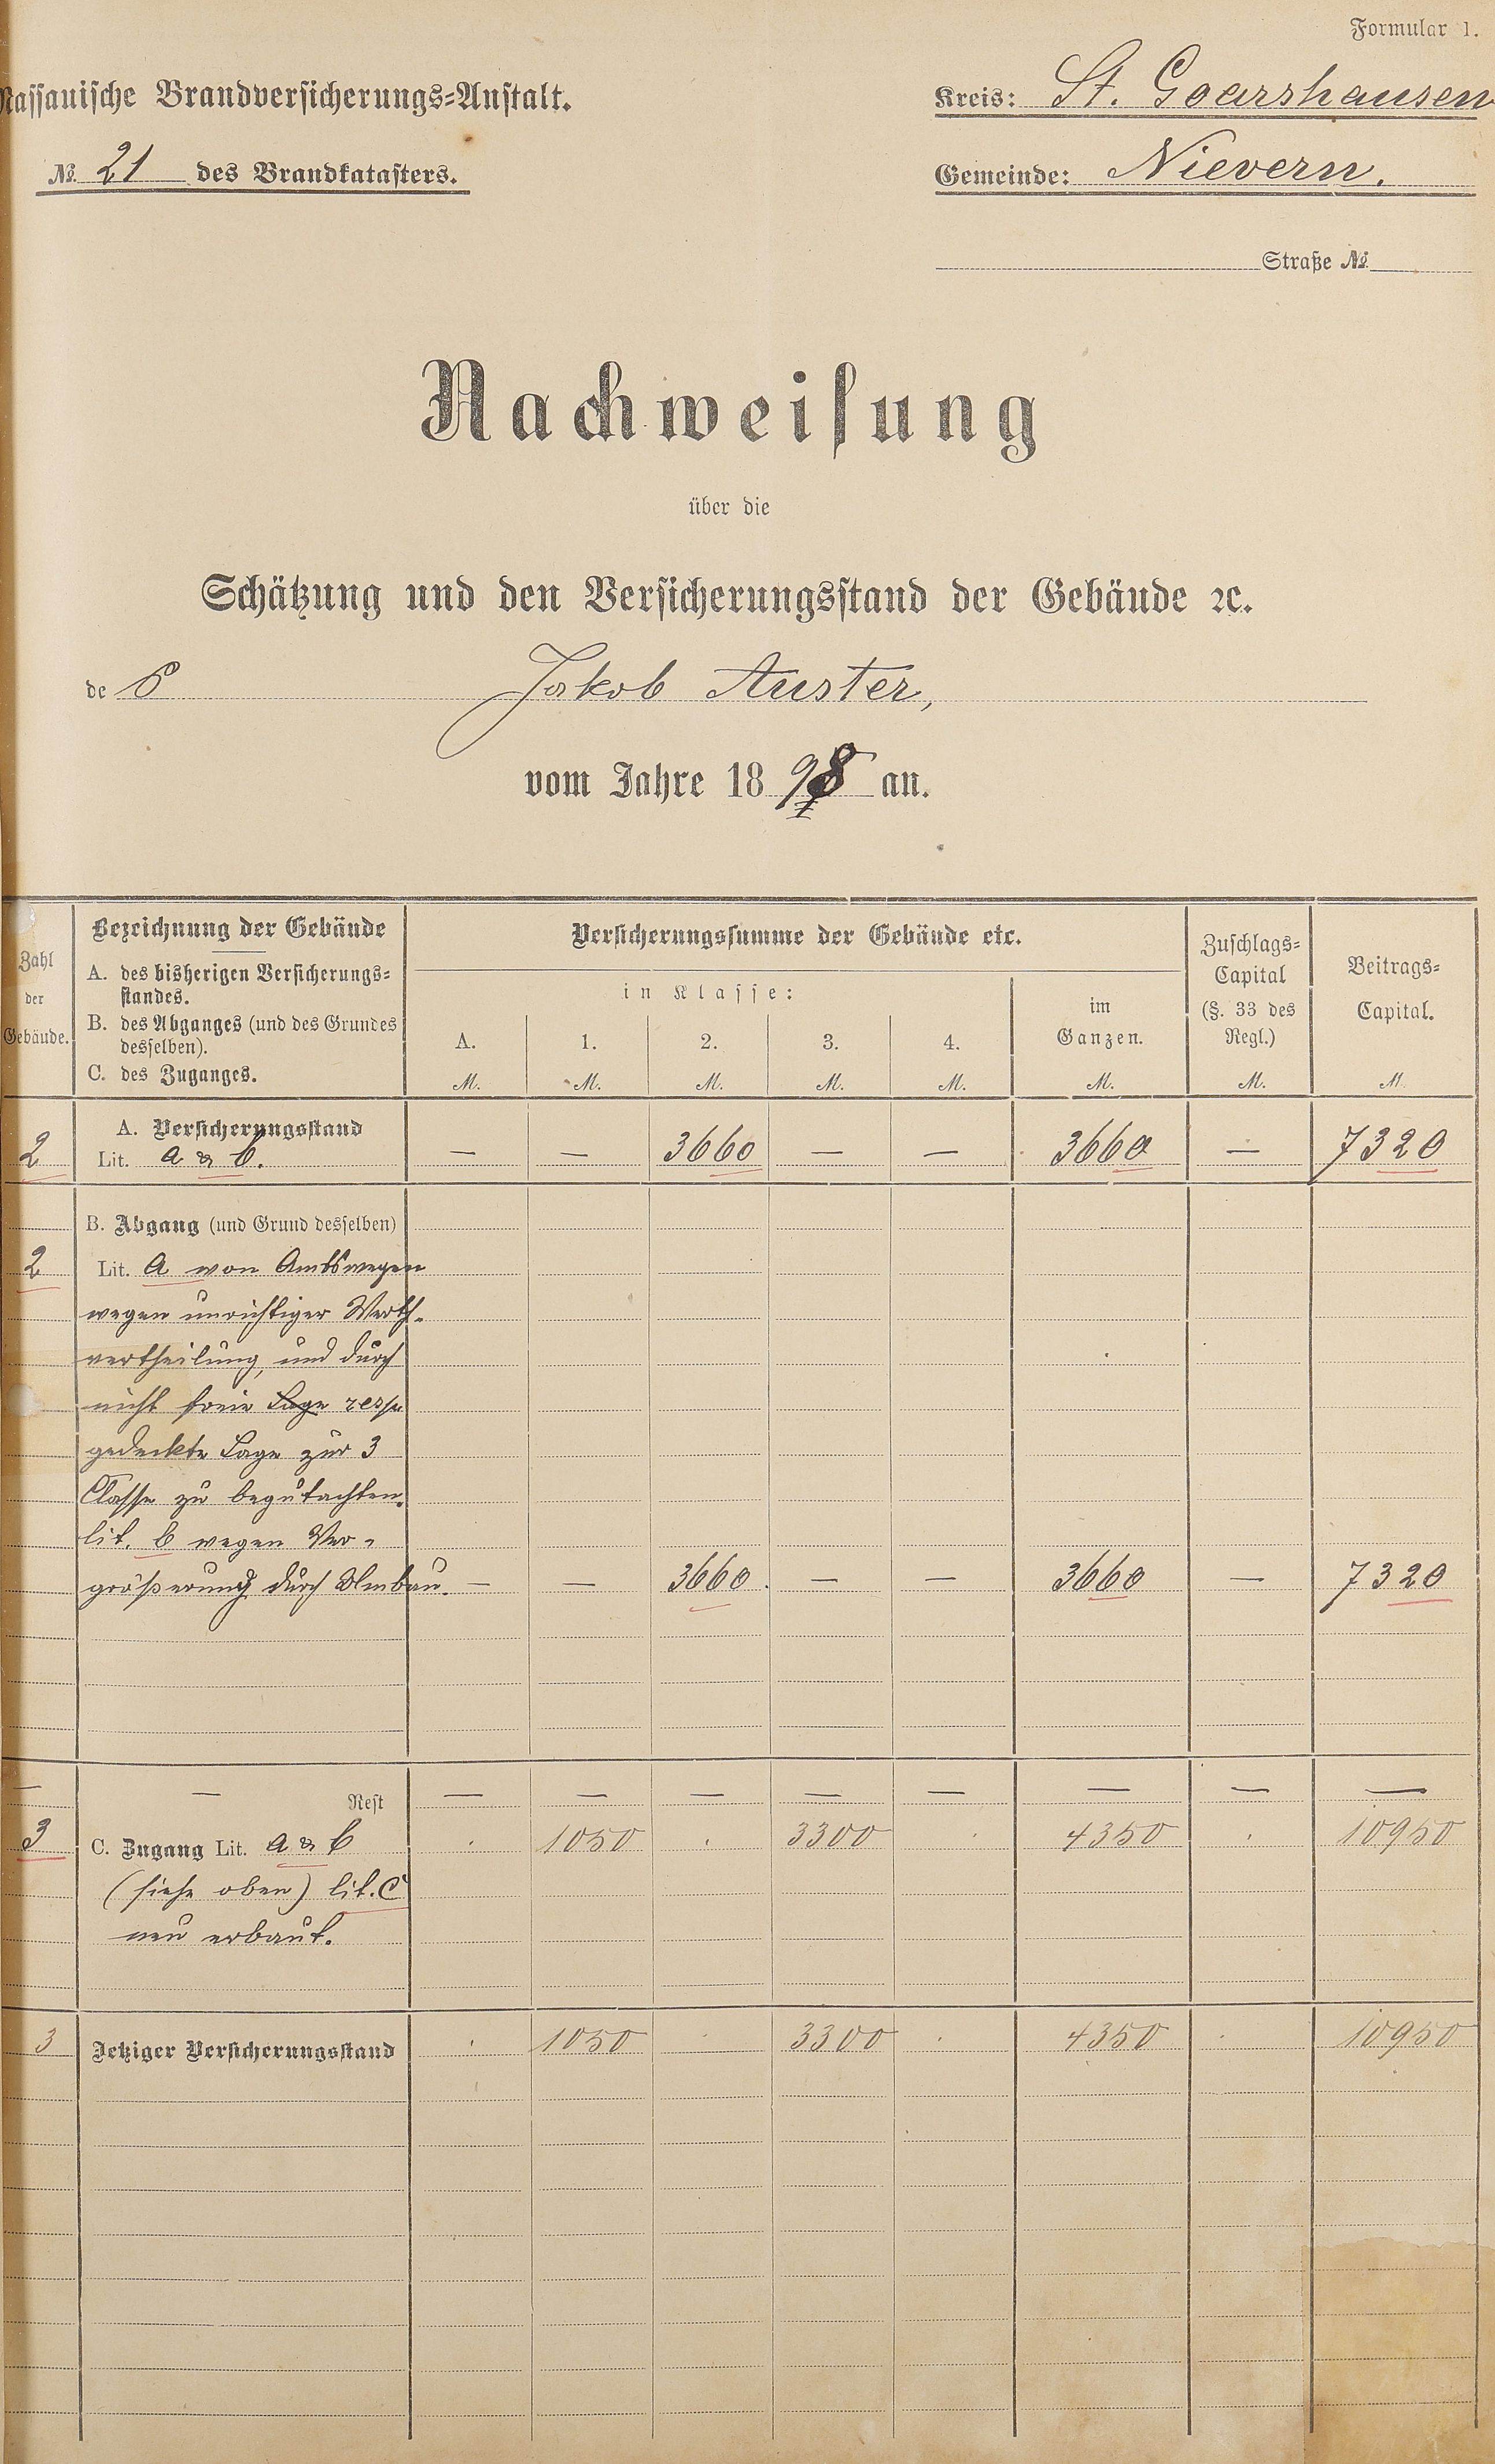 Formular 1.
Nassauische Brandversicherungs=Anstalt.
Kreis: St. Goarshausen
№ 21 des Brandkatasters.
Gemeinde: Nievern.
Straße №
Nachweisung
über die
Schätzung und den Versicherungsstand der Gebäude ꝛc.
des Jakob Auster,
vom Jahre 1898 an.
Zahl der Gebäude.
Bezeichnung der Gebäude
A. des bisherigen Versicherungs=
standes.
B. des Abganges (und des Grundes
desselben).
C. des Zuganges.
Versicherungssumme der Gebäude etc.
in Klasse:
A. 1. 2. 3. 4.
im
Ganzen.
Zuschlags=
Capital
(§. 33 des
Regl.)
Beitrags=
Capital.
M. M. M. M. M. M. M. M.
A. Versicherungsstand
2 Lit. a & b. — — 3660 — — 3660 — 7320
B. Abgang (und Grund desselben)
2 Lit. a von Amtswegen
wegen unrichtiger Werth-
vertheilung, und durch
nicht freie Lage resp
gedeckte Lage zur 3
Classe zu begutachten.
lit. b wegen Ver-
größerung durch Umbau. — — 3660 — — 3660 — 7320
— — Rest — — — — — — — —
3 C. Zugang Lit. a & b . 1050 . 3300 . 4350 . 10950
(siehe oben) lit. C
neu erbaut.
3 Jetziger Versicherungsstand . 1050 . 3300 . 4350 . 10950